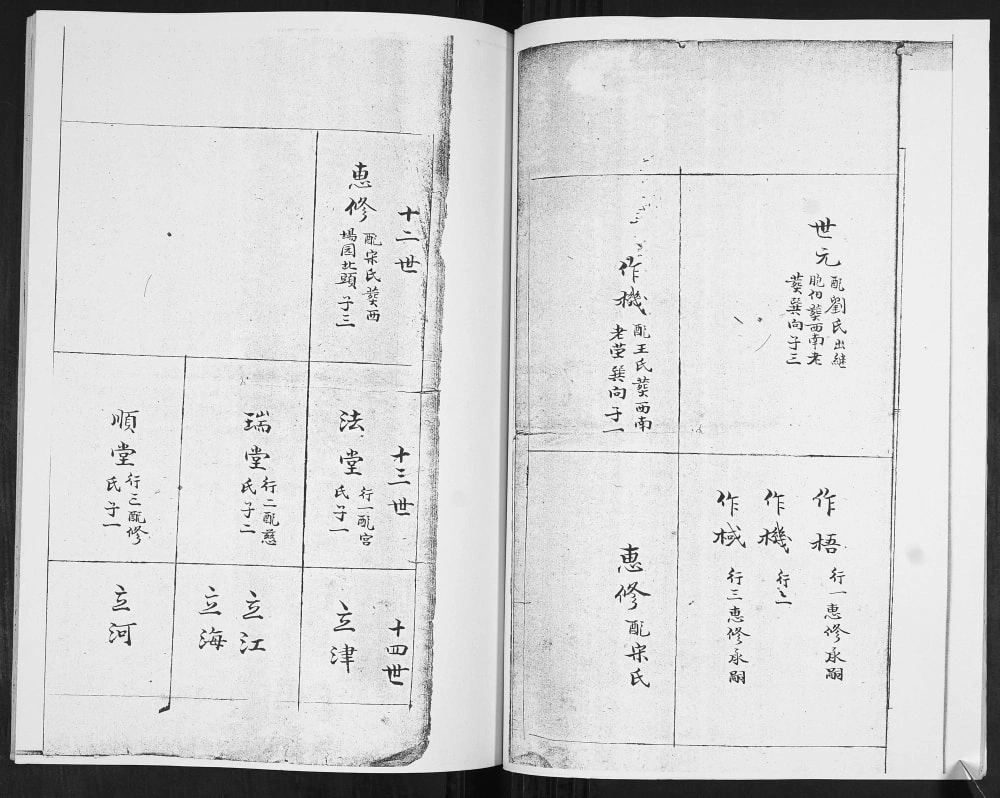 世元 配劉氏出継
胞伯葬西南老
葬巽向子三
作梧 行一惠修承嗣
作機 行二
作棫 行三惠修承嗣
作機 配王氏葬西南
老茔巽向子一
惠修 配宋氏
十二世
惠修 配宋氏葬西
場园北頭子三
十三世
法堂 行一配宫
氏子一
瑞堂 行二配慈
氏子二
順堂 行三配修
氏子一
十四世
立津
立江
立海
立河